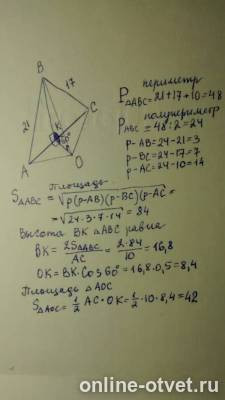 B
17
C
21
K
60°
A
O
периметр
P ΔABC = 21+17+10=48
полупериметр
P ABC = 48:2=24
p-AB=24-21=3
p-BC=24-17=7
p-AC=24-10=14
Площадь
S ΔABC = √p(p-AB)(p-BC)(p-AC =
= √24·3·7·14 = 84
Высота BK ΔABC равна
BK = 2SΔABC / AC = 2·84 / 10 = 16,8
OK = BK·Cos 60° = 16,8·0,5 = 8,4
Площадь ΔAOC
S ΔAOC = 1/2 AC·OK = 1/2·10·8,4=42
online-otvet.ru